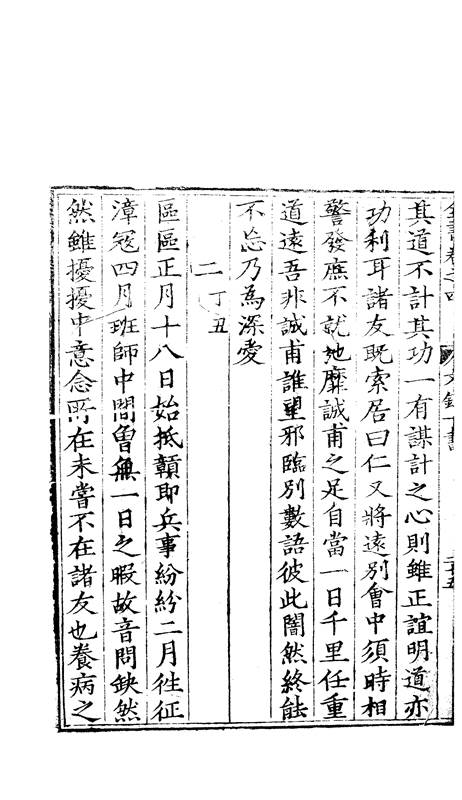 其道不計其功一有謀計之心則雖正誼明道亦
功利耳諸友既索居曰仁又將遠別會中須時相
警發庶不就弛靡誠甫之足自當一日千里任重
道遠吾非誠甫誰望邪臨別數語彼此闇然終能
不忘乃為深愛
二丁丑
區區正月十八日始抵贛即兵事紛紛二月徃征
漳冦四月班師中間曾無一日之暇故音問缺然
然雖擾擾中意念所在未嘗不在諸友也養病之